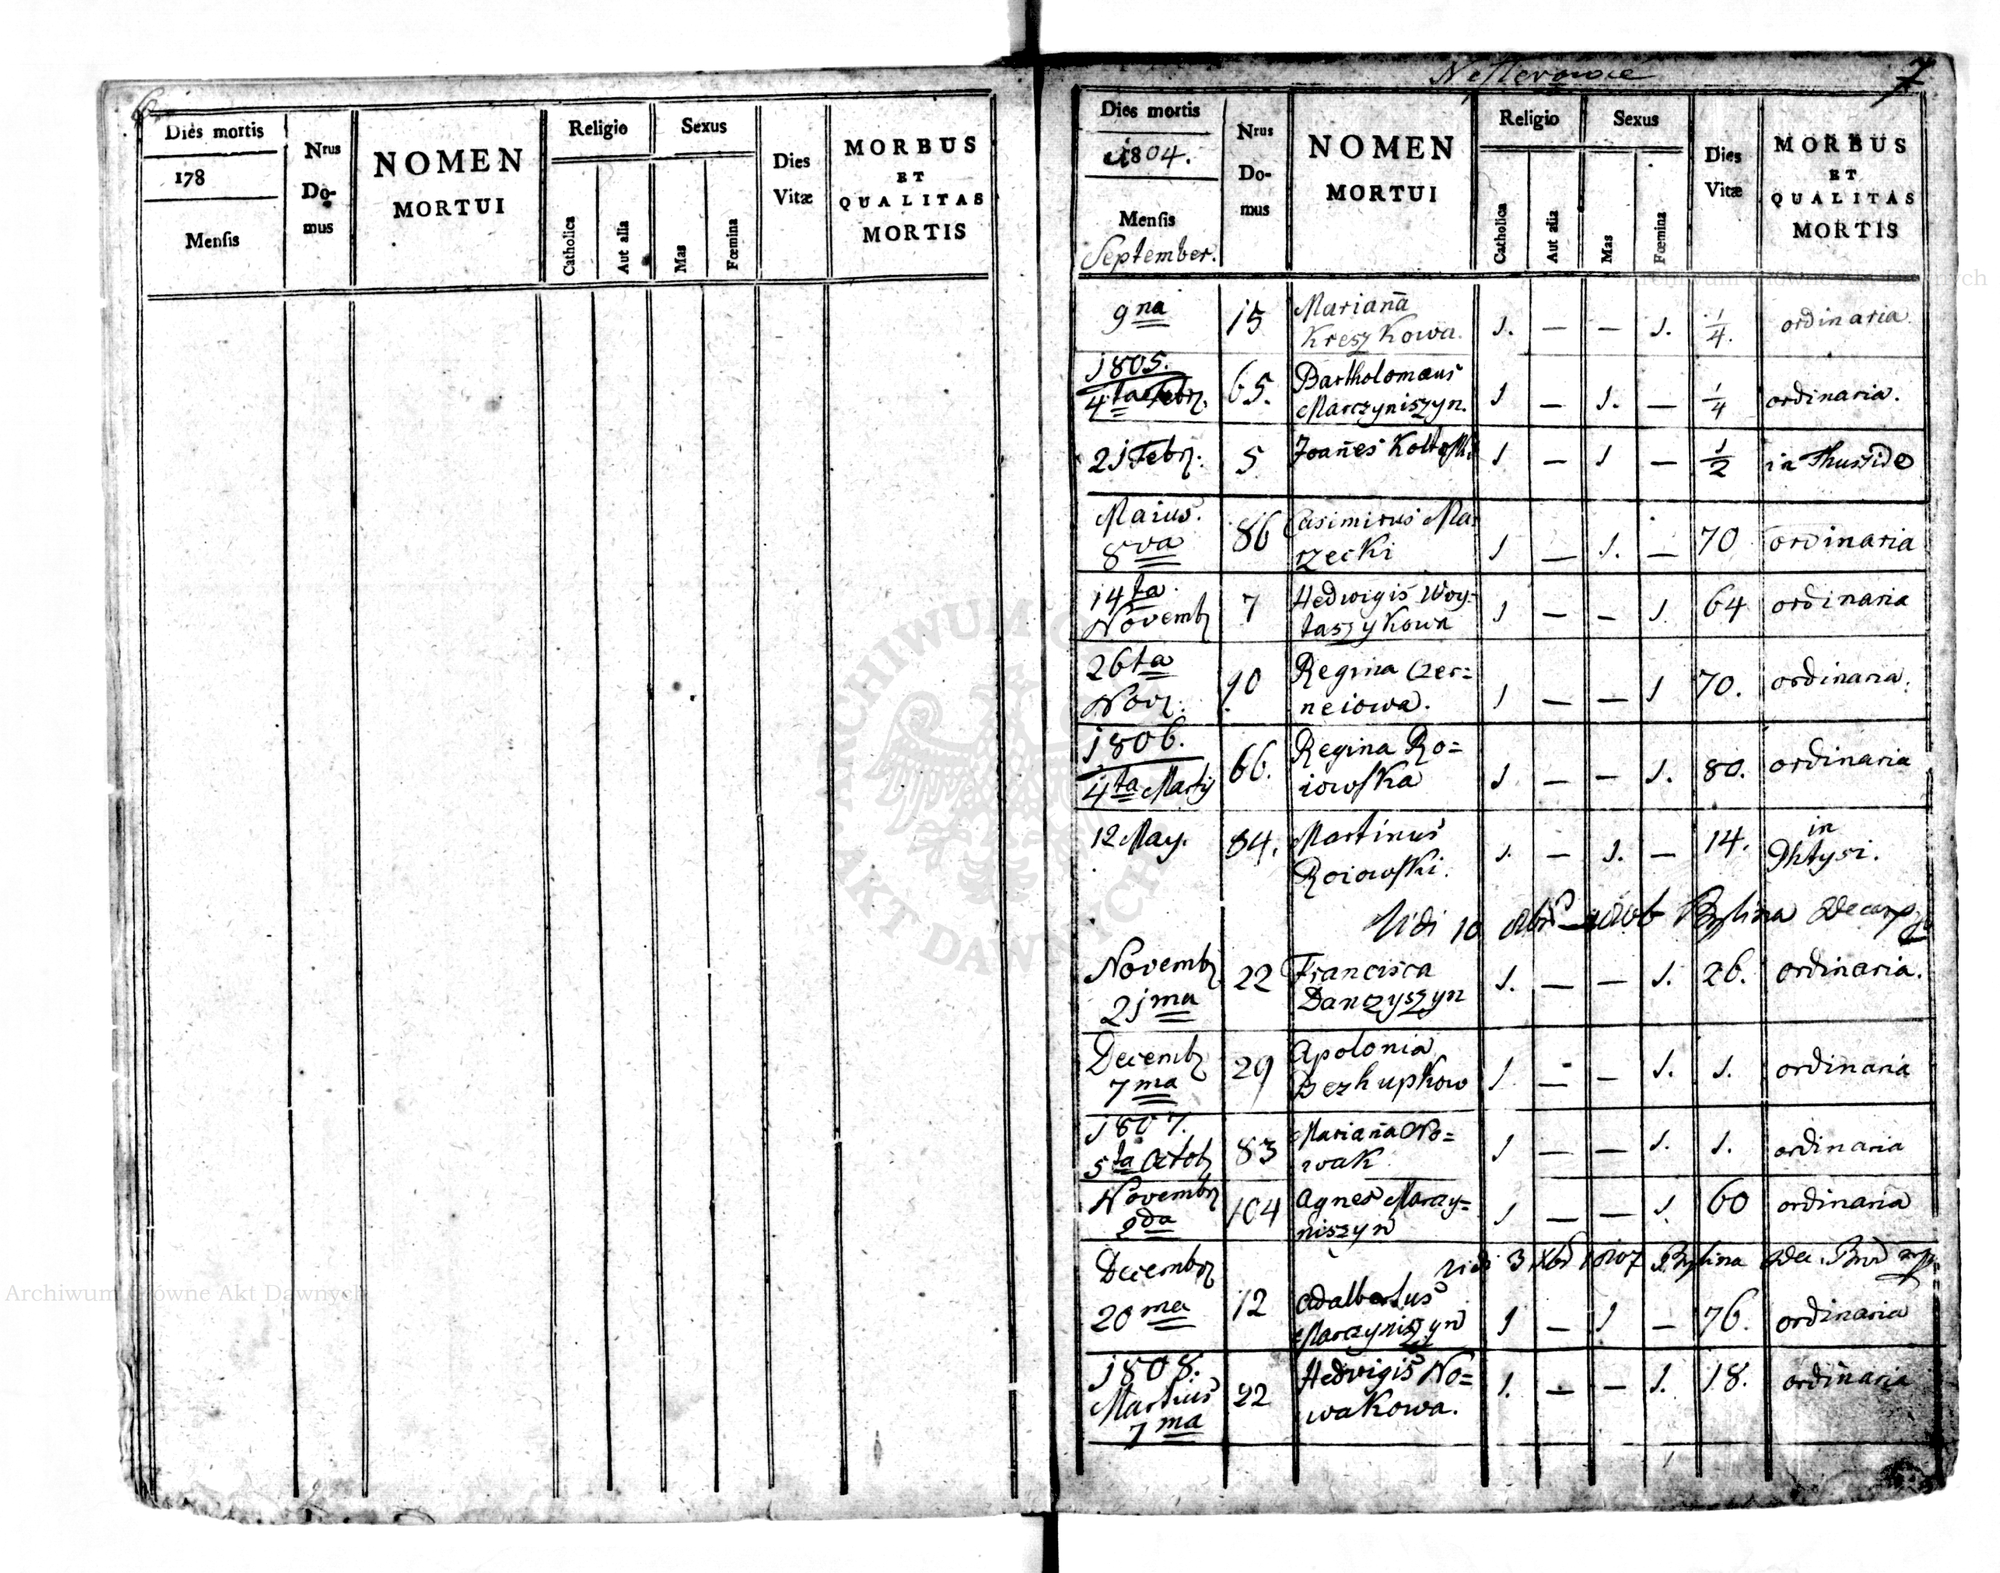 6
Dies mortis
178
Mensis
Nrus
Do-
mus
NOMEN
MORTUI
Religio
Catholica
Aut alia
Sexus
Mas
Fœmina
Dies
Vitæ
MORBUS
ET
QUALITAS
MORTIS
7
Dies mortis
1804.
Mensis
September.
Nrus
Do-
mus
NOMEN
MORTUI
Religio
Catholica
Aut alia
Sexus
Mas
Fœmina
Dies
Vitæ
MORBUS
ET
QUALITAS
MORTIS
9na 15 Mariaña Kreszkowa. 1. — — 1. 1/4. ordinaria.
1805.
4ta Febr. 65. Bartholomæus Marczyniszyn. 1 — 1. — 1/4 ordinaria.
21 Febr. 5 Joañes 1 — 1 — 1/2 in
Maius. 8va 86 Casimirus Ma- rzecki 1 — 1. — 70 ordinaria
14ta Novemb 7 Hedwigis Woy- taszykowa 1 — — 1 64 ordinaria
26ta Nov. 90 Regina Czer= neiowa. 1 — — 1 70. ordinaria.
1806.
4ta Martij 66. Regina Ro= iowska 1 — — 1. 80. ordinaria
12 May. 84. Martinus Roiowski. 1. — 1. — 14. in Phtysi.
Vidi 10 1806 Bylina
Novemb 21ma 22 Francisca Danczyszyn 1. — — 1. 26. ordinaria.
Decemb 7ma 29 Apolonia Bezkupkow 1. — — 1. 1. ordinaria
1807.
5ta Octob 83 Mariaña No= wak 1 — — 1. 1. ordinaria
Novemb 2da 104 Agnes Marczy= niszyn 1 — — 1. 60 ordinaria
Vidi 3 Xbr 1807 Bylina Dec.
Decemb 20ma 12 Adalbertus Marczyniszyn 1 — 1 — 76. ordinaria
1808.
Martius 7ma 22 Hedvigis No= wakowa. 1. — — 1. 18. ordinaria
ARCHIWUM GŁÓWNE AKT DAWNYCH
Archiwum Główne Akt Dawnych
Archiwum Główne Akt Dawnych